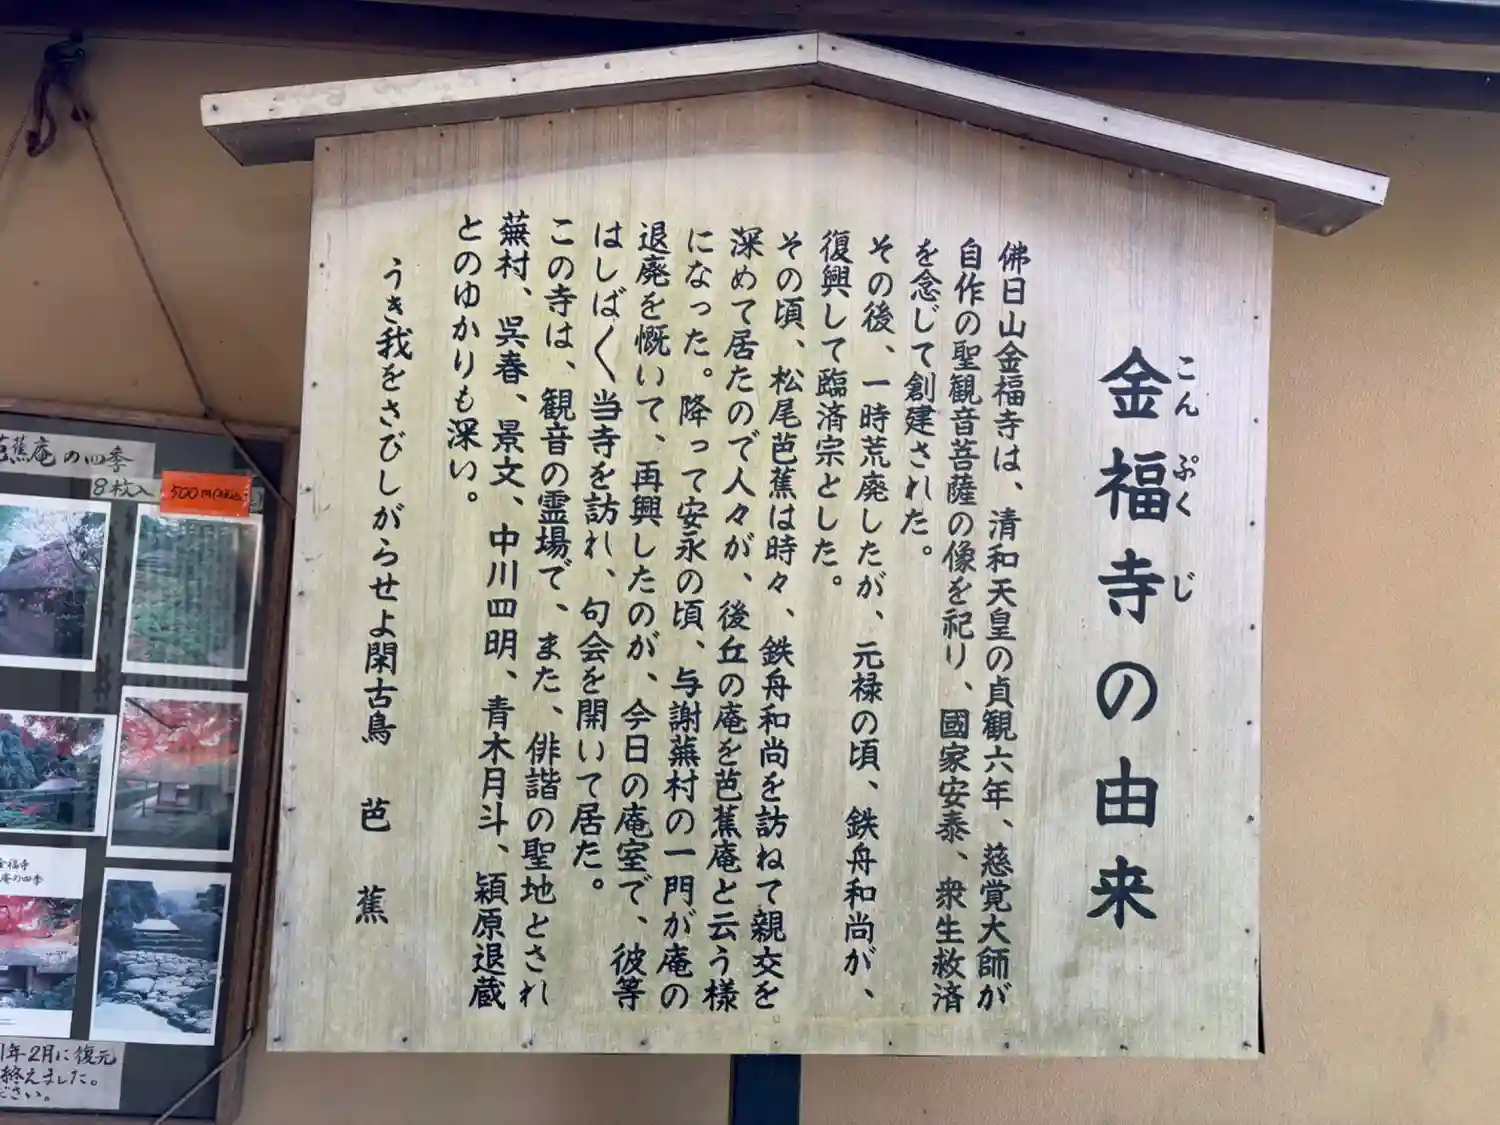 金福寺の由来
こんぷくじ
佛日山金福寺は、清和天皇の貞観六年、慈覚大師が
自作の聖観音菩薩の像を祀り、國家安泰、衆生救済
を念じて創建された。
その後、一時荒廃したが、元禄の頃、鉄舟和尚が、
復興して臨済宗とした。
その頃、松尾芭蕉は時々、鉄舟和尚を訪ねて親交を
深めて居たので人々が、後丘の庵を芭蕉庵と云う様
になった。降って安永の頃、与謝蕪村の一門が庵の
退廃を慨いて、再興したのが、今日の庵室で、彼等
はしば〱当寺を訪れ、句会を開いて居た。
この寺は、観音の霊場で、また、俳諧の聖地とされ
蕪村、呉春、景文、中川四明、青木月斗、穎原退蔵
とのゆかりも深い。
うき我をさびしがらせよ閑古鳥 芭蕉
芭蕉庵の四季
8枚入
500円
金福寺
庵の四季
1年2月に復元
終えました。
ださい。